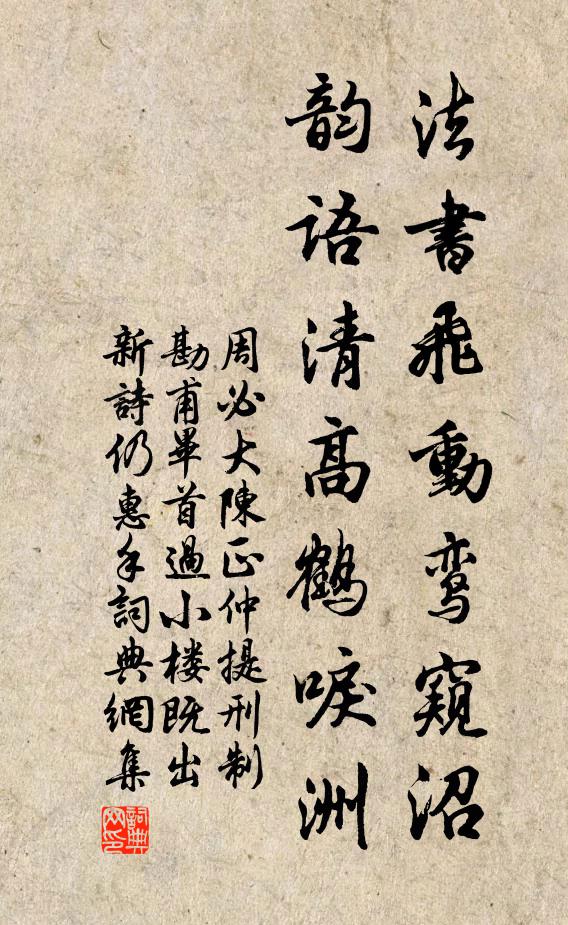 法書飛動鸾窺沼
韵語清高鶴唳洲
周必大陳正仲提刑制
勘甫畢首過小楼既出
新詩仍惠手詞典網集
詞典
网印